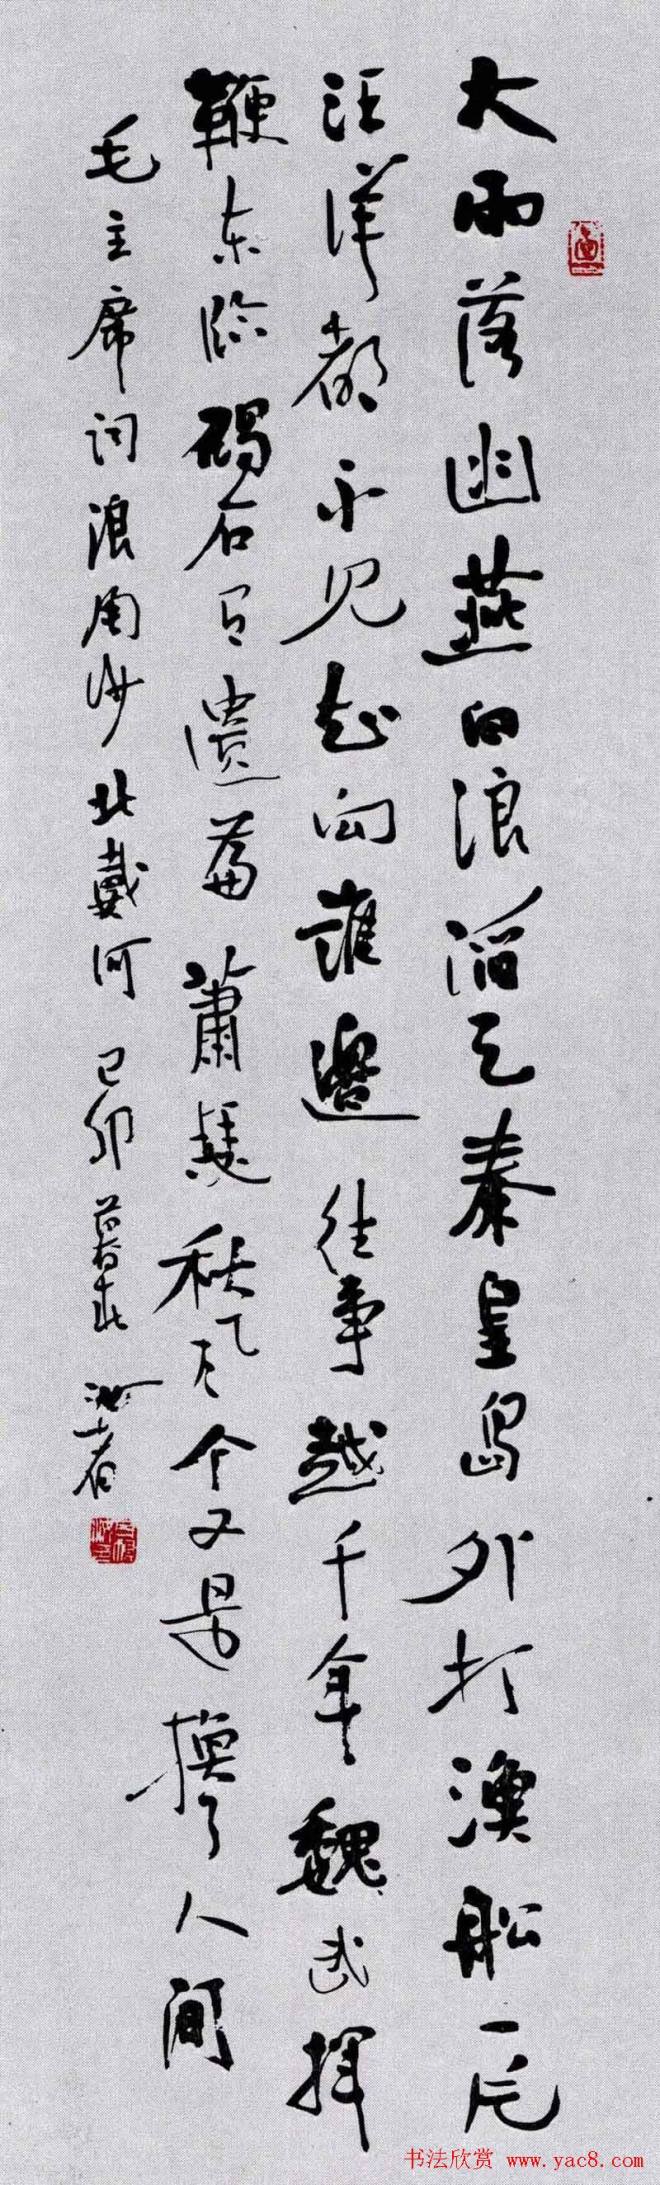 大雨落幽燕白浪滔天秦皇島外打漁船一片
汪洋都不見知向誰邊往事越千年魏武揮
鞭東臨碣石有遺篇蕭瑟秋風今又是換了人間
毛主席詞浪淘沙北戴河 己卯暮春
书法欣赏 www.yac8.com